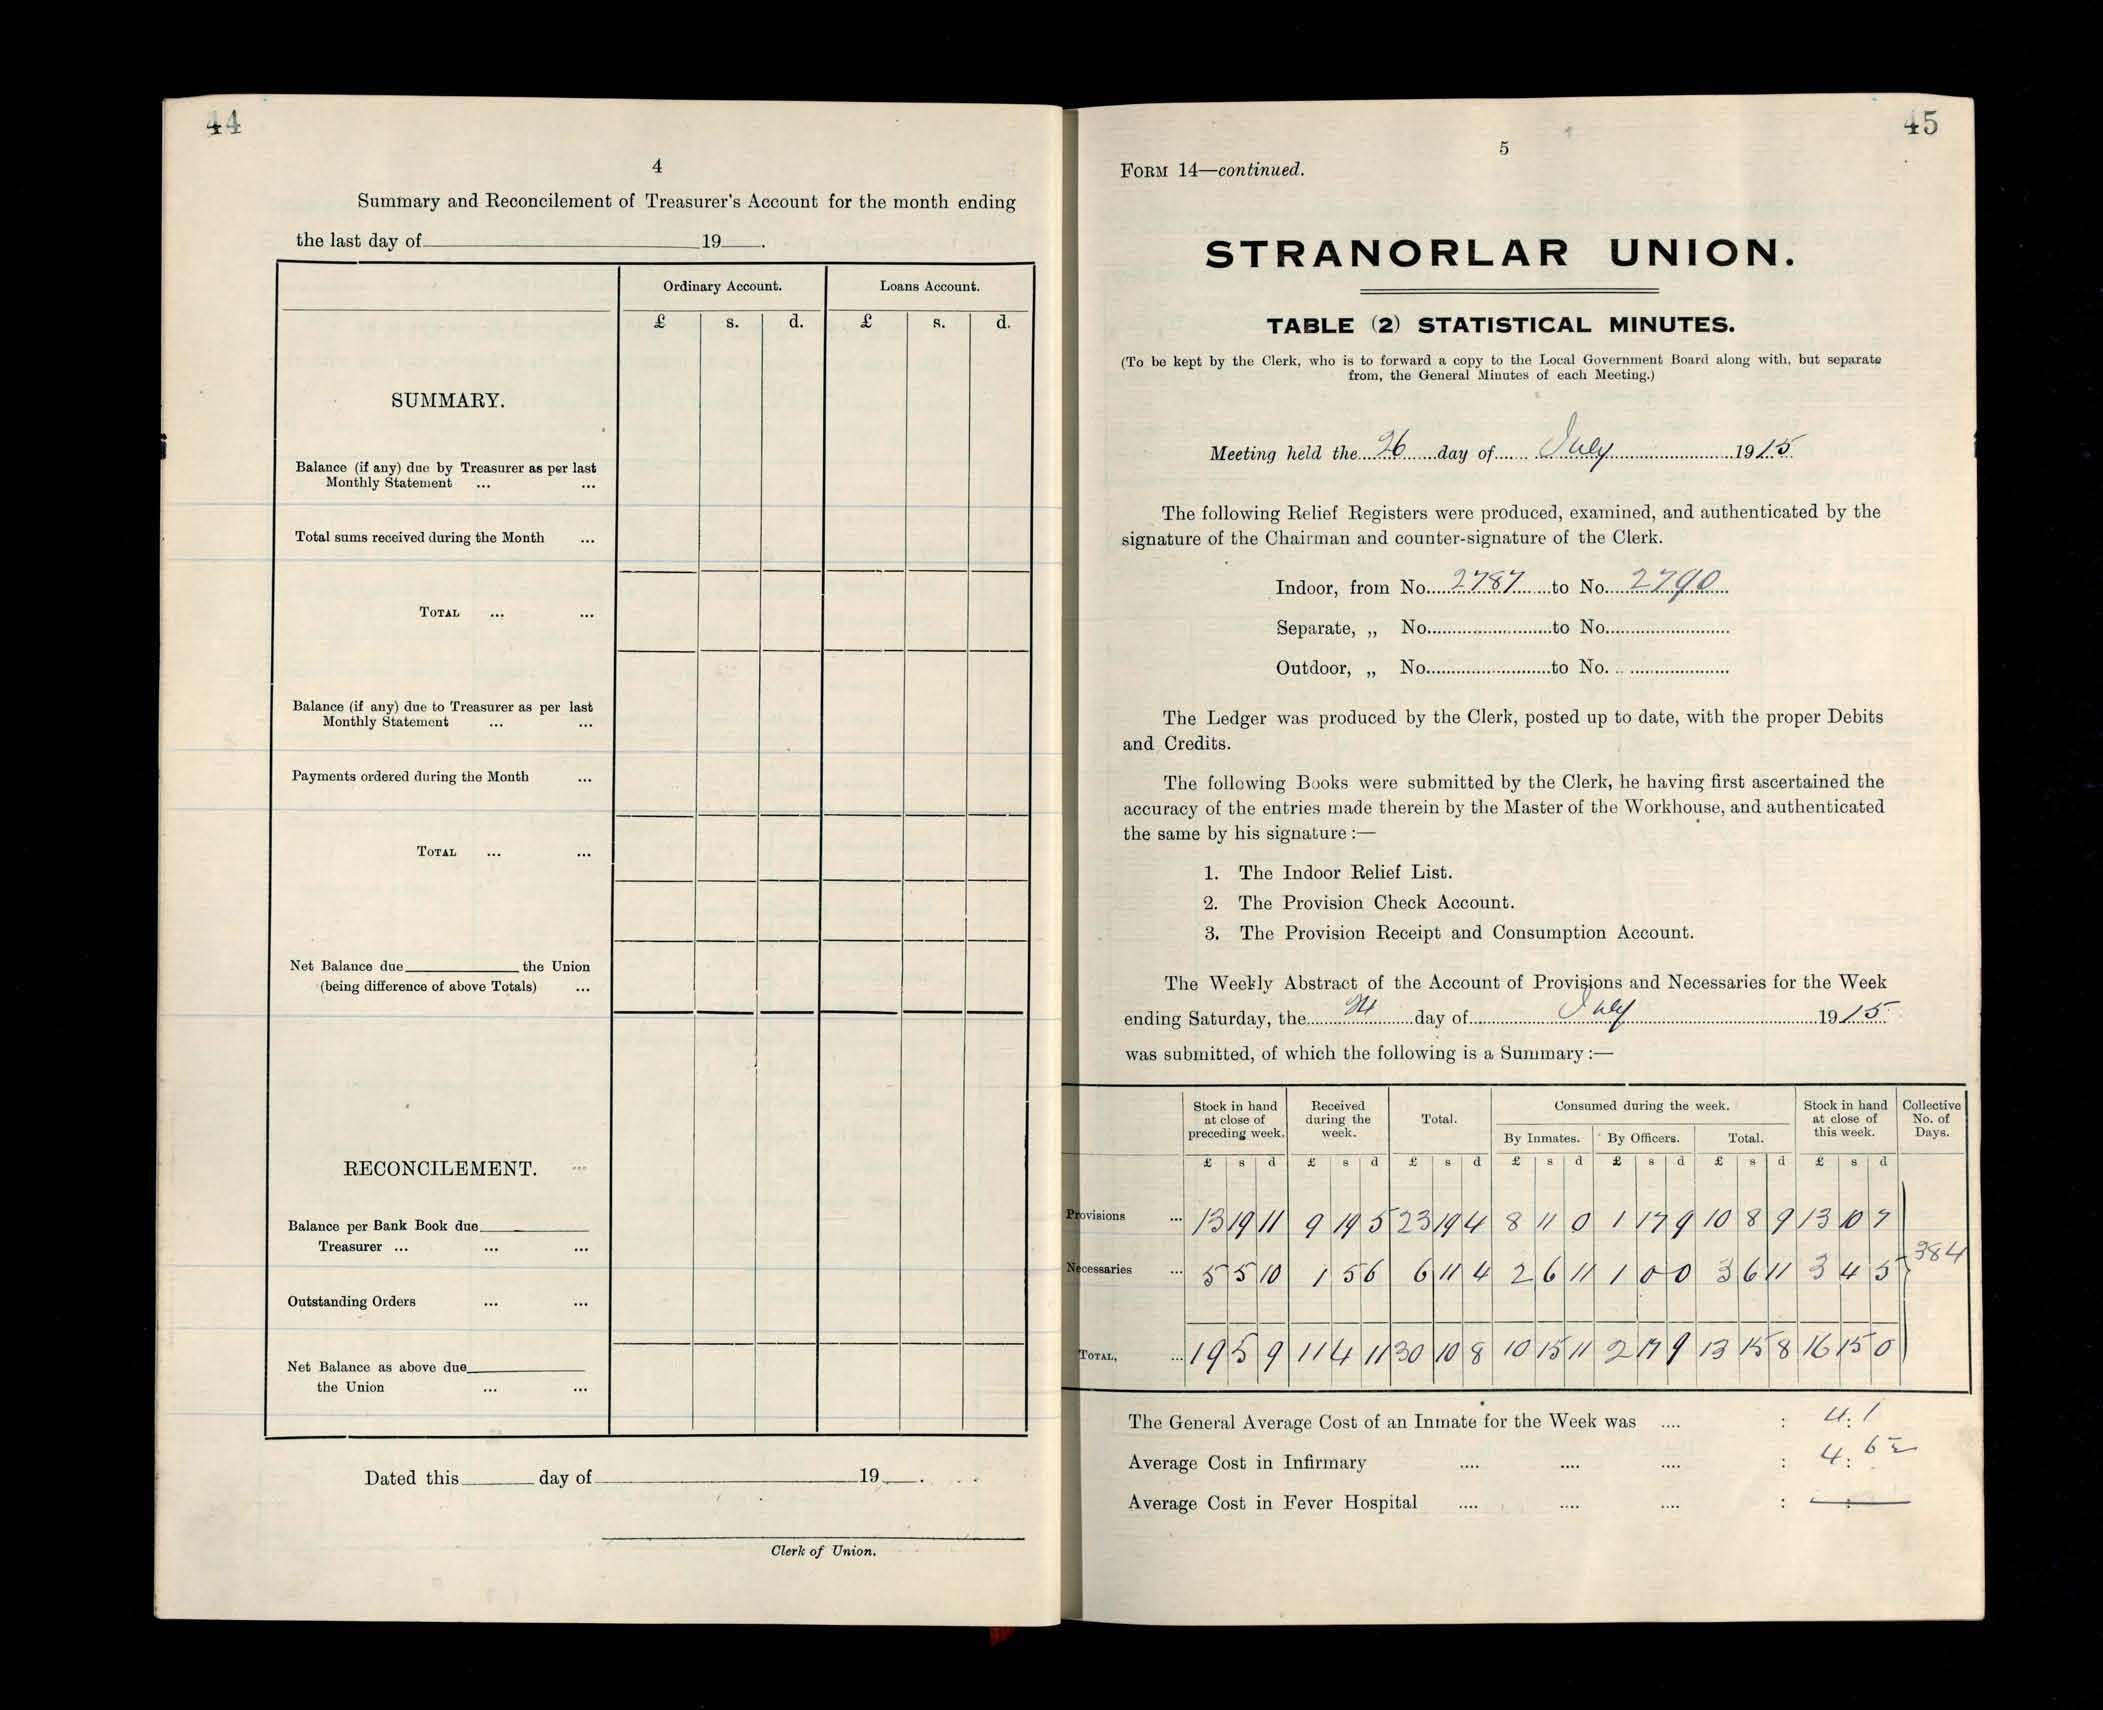 44
4
Summary and Reconcilement of Treasurer's Account for the month ending
the last day of 19 .
Ordinary Account. Loans Account.
£ s. d. £ s. d.
SUMMARY.
Balance (if any) due by Treasurer as per last
Monthly Statement ... ...
Total sums received during the Month ...
TOTAL ... ...
Balance (if any) due to Treasurer as per last
Monthly Statement ... ...
Payments ordered during the Month ...
TOTAL ... ...
Net Balance due the Union
(being difference of above Totals) ...
RECONCILEMENT. ...
Balance per Bank Book due
Treasurer ... ... ...
Outstanding Orders ... ...
Net Balance as above due
the Union ... ...
Dated this day of 19 .
Clerk of Union.
45
5
FORM 14—continued.
STRANORLAR UNION.
TABLE (2) STATISTICAL MINUTES.
(To be kept by the Clerk, who is to forward a copy to the Local Government Board along with, but separate
from, the General Minutes of each Meeting.)
Meeting held the 26 day of July 1915
The following Relief Registers were produced, examined, and authenticated by the
signature of the Chairman and counter-signature of the Clerk.
Indoor, from No. 2787 to No. 2790
Separate, „ No. to No.
Outdoor, „ No. to No.
The Ledger was produced by the Clerk, posted up to date, with the proper Debits
and Credits.
The following Books were submitted by the Clerk, he having first ascertained the
accuracy of the entries made therein by the Master of the Workhouse, and authenticated
the same by his signature :—
1. The Indoor Relief List.
2. The Provision Check Account.
3. The Provision Receipt and Consumption Account.
The Weekly Abstract of the Account of Provisions and Necessaries for the Week
ending Saturday, the 24 day of July 1915
was submitted, of which the following is a Summary :—
Stock in hand at close of preceding week. Received during the week. Total. Consumed during the week. Stock in hand at close of this week. Collective No. of Days.
By Inmates. By Officers. Total.
£ s d £ s d £ s d £ s d £ s d £ s d £ s d
Provisions ... 13 19 11 9 19 5 23 19 4 8 11 0 1 17 9 10 8 9 13 10 7
Necessaries ... 5 5 10 1 5 6 6 11 4 2 6 11 1 0 0 3 6 11 3 4 5 384
TOTAL, ... 19 5 9 11 4 11 30 10 8 10 15 11 2 17 9 13 15 8 16 15 0
The General Average Cost of an Inmate for the Week was .... : 4:1
Average Cost in Infirmary .... .... .... : 4:
Average Cost in Fever Hospital .... .... .... :